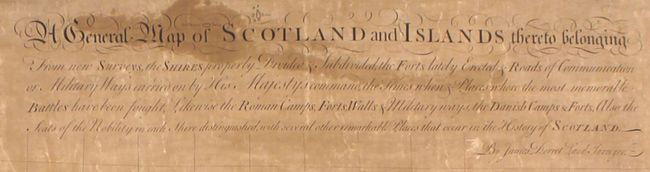 A General Map of SCOTLAND and ISLANDS thereto belonging
From new Surveys, the SHIRES properly Divided & Subdivided, the Forts lately Erected & Roads of Communication
or Military Ways carried on by His Majesty's command, the Times when & Places where the most memorable
Battles have been fought, Likewise the Roman Camps, Forts, Walls & Military ways, the Danish Camps & Forts, Also the
Seats of the Nobility in each Shire distinguished, with several other remarkable Places that occur in the History of SCOTLAND.
By James Dorret Land Surveyor.